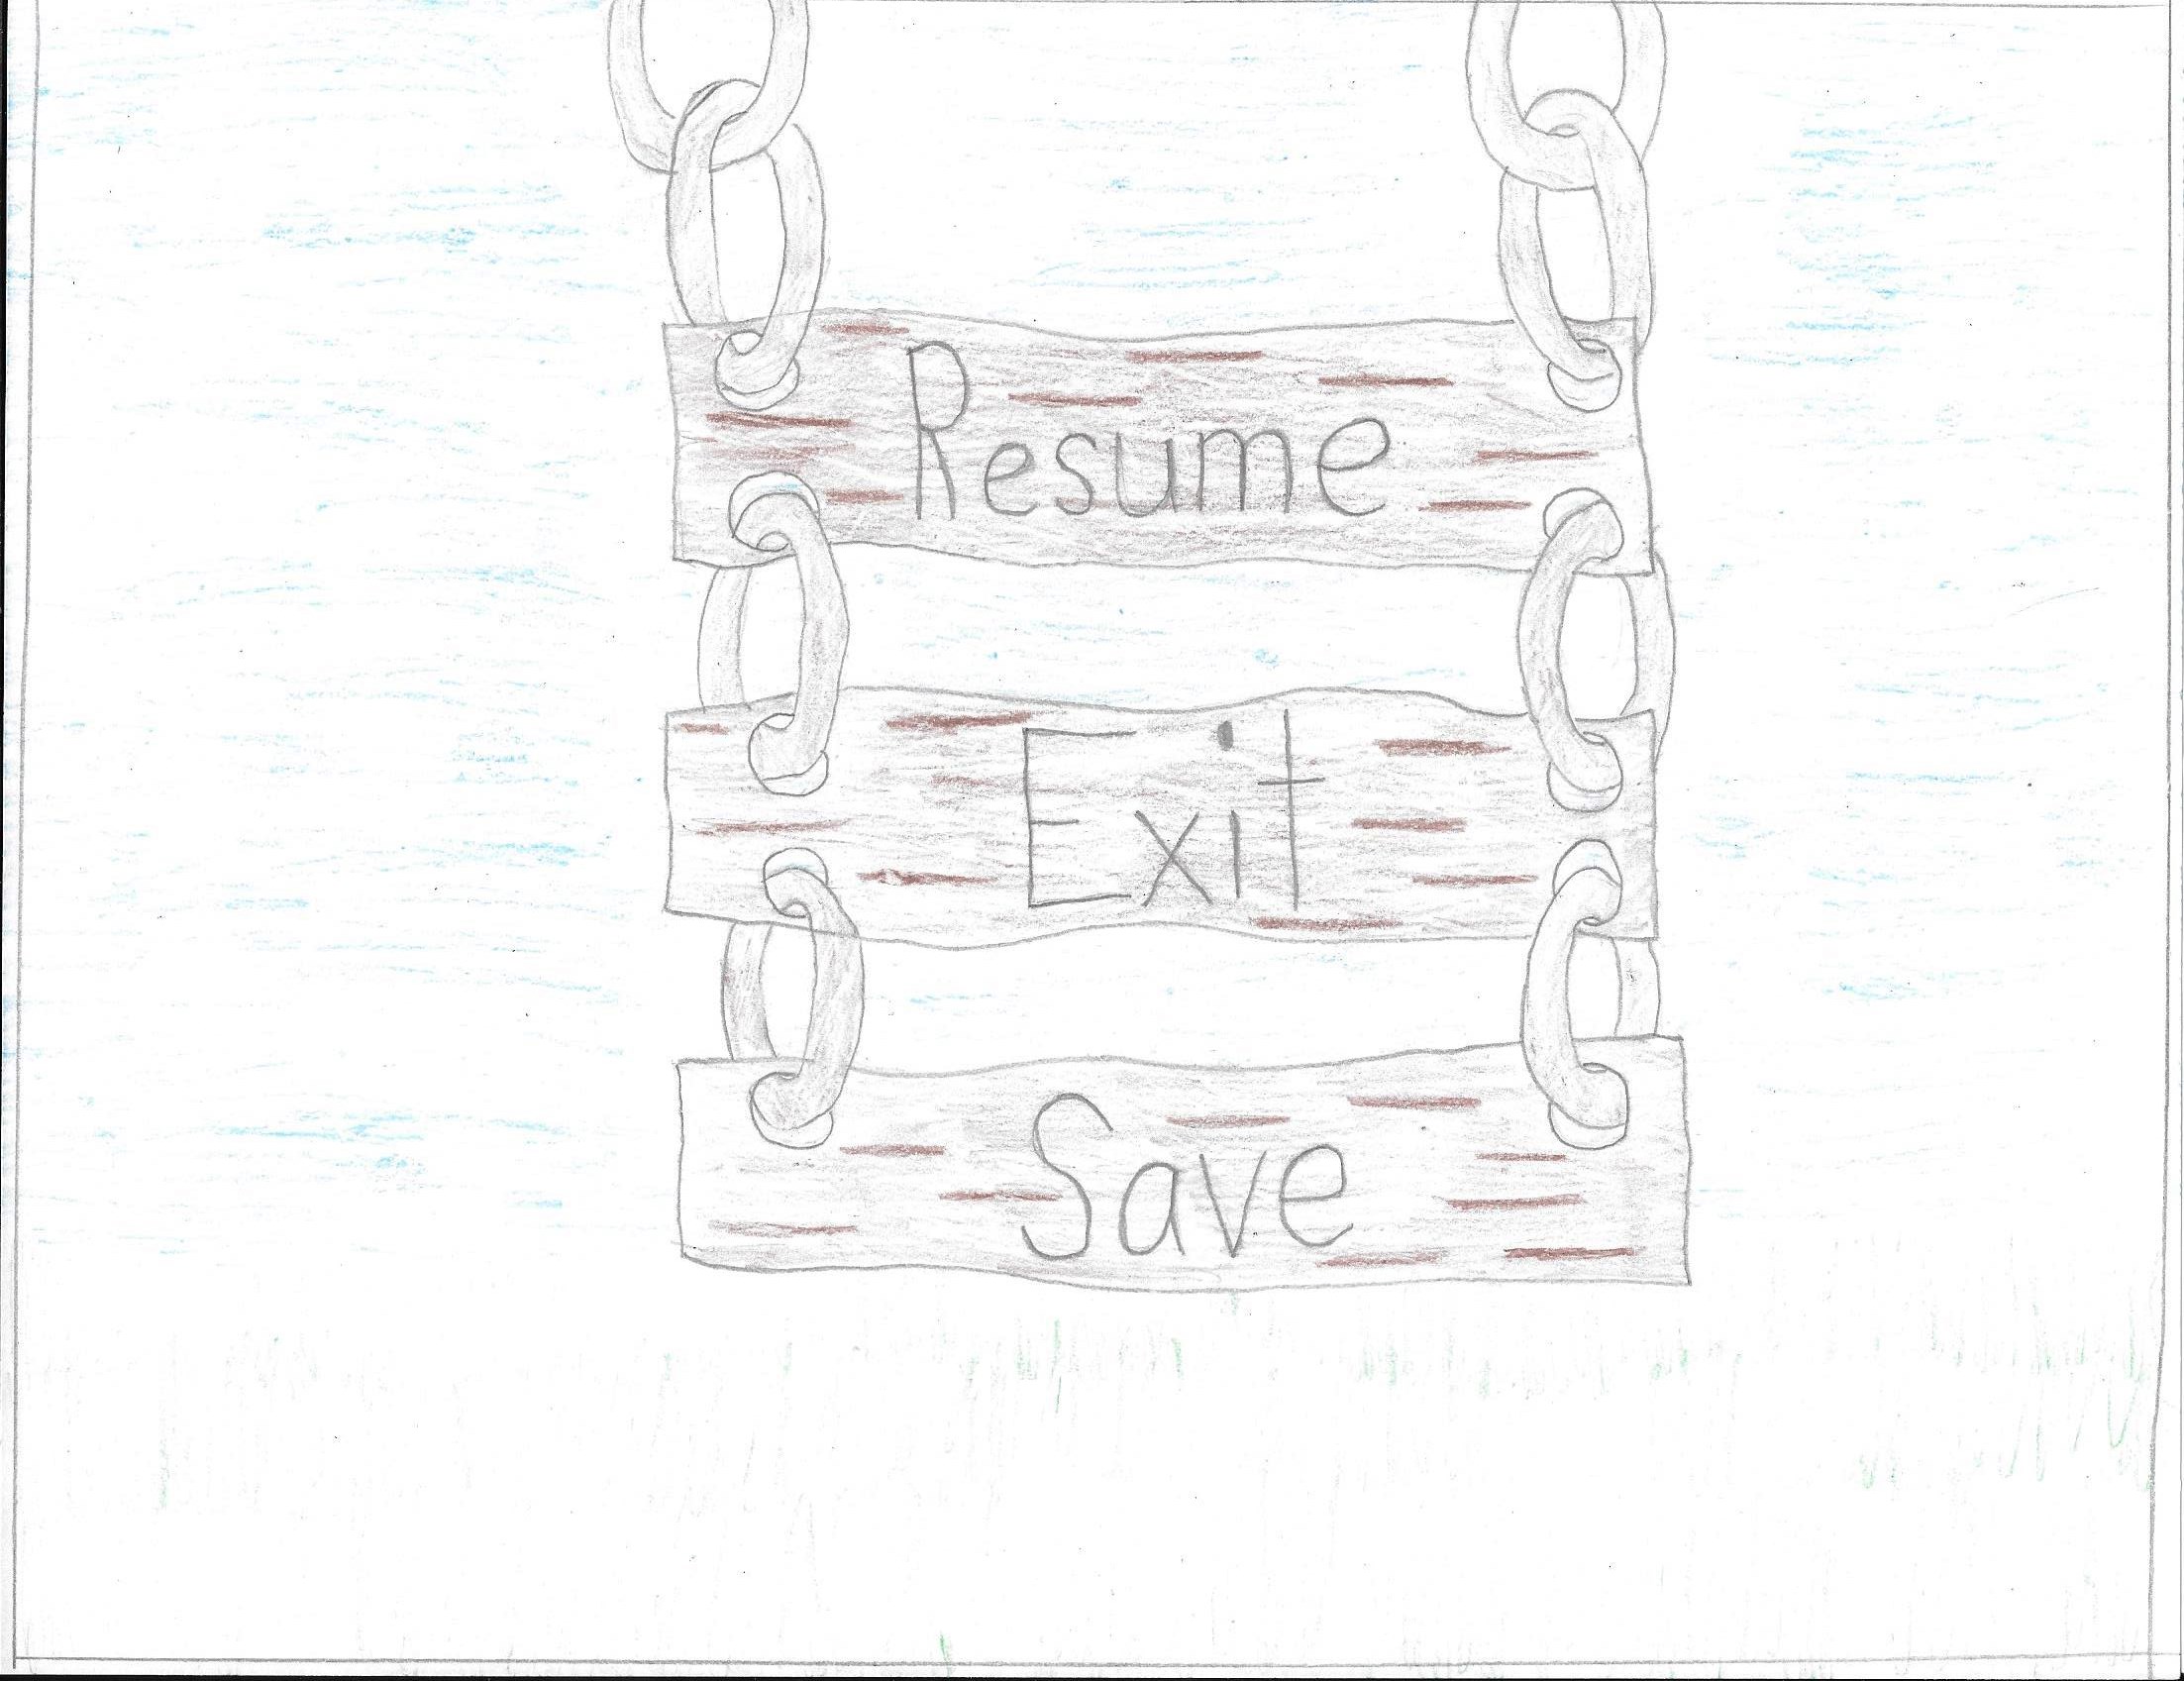 Resume
Exit
Save